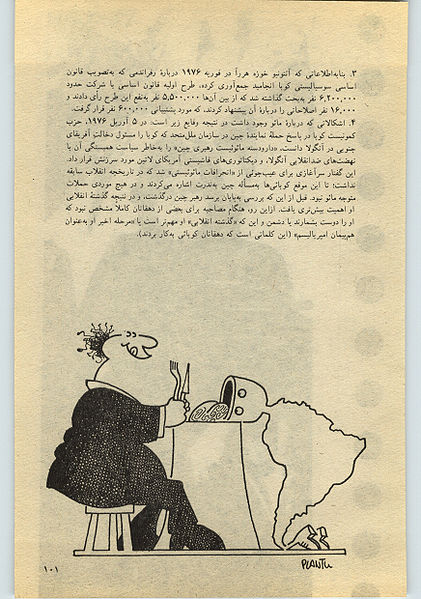 ۳. بنابه‌اطلاعاتی که آنتونیو خوزه هررآ در فوریه ۱۹۷۶ دربارهٔ رفراندمی که به‌تصویب قانون
اساسی سوسیالیستی کوبا انجامید جمع‌آوری کرده، طرح اولیه قانون اساسی با شرکت حدود
۶,۲۰۰,۰۰۰ نفر به‌بحث گذاشته شد که از بین آن‌ها ۵,۵۰۰,۰۰۰ نفر به‌نفع این طرح رأی دادند و
۱۶,۰۰۰ نفر اصلاحاتی را دربارهٔ آن پیشنهاد کردند، که مورد پشتیبانی ۶۰۰,۰۰۰ نفر قرار گرفت.
۴. اشکالاتی که دربارهٔ مائو وجود داشت در نتیجه وقایع زیر است. در ۵ آوریل ۱۹۷۶، حزب
کمونیست کوبا در پاسخ حملهٔ نمایندهٔ چین در سازمان ملل‌متحد که کوبا را مسئول دخالت آفریقای
جنوبی در آنگولا دانست، «دارودسته مائوئیست رهبری چین» را به‌خاطر سیاست همبستگی آن با
نهضت‌های ضدانقلابی آنگولا، و دیکتاتوری‌های فاشیستی آمریکای لاتین مورد سرزنش قرار داد.
این گفتار سرآغازی برای عیب‌جوئی از «انحرافات مائوئیستی» شد که در تاریخچه انقلاب سابقه
نداشت؛ تا این موقع کوبائی‌ها به‌مسأله چین به‌ندرت اشاره می‌کردند و در هیچ موردی حملات
متوجه مائو نبود. قبل از این که بررسی به‌پایان برسد رهبر چین درگذشت، و در نتیجه گذشتهٔ انقلابی
او اهمیت بیش‌تری یافت. ازاین رو، هنگام مصاحبه برای بعضی از دهقانان کاملاً مشخص نبود که
او را دوست بشمارند یا دشمن و این که «گذشته انقلابی» او مهم‌تر است یا «مرحله اخیر او به‌عنوان
هم‌پیمان امپریالیسم» (این کلماتی است که دهقانان کوبائی به‌کار بردند).
PLANTU
۱۰۱